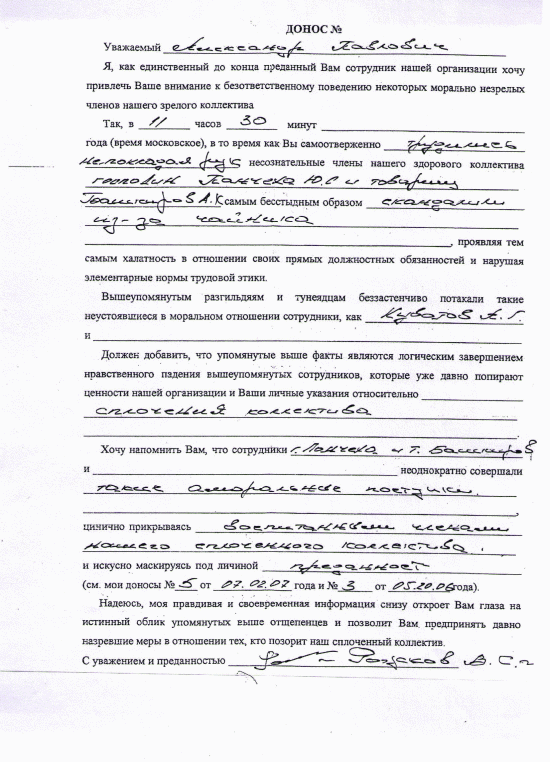 ДОНОС №
Уважаемый Александр Павлович
Я, как единственный до конца преданный Вам сотрудник нашей организации хочу
привлечь Ваше внимание к безответственному поведению некоторых морально незрелых
членов нашего зрелого коллектива
Так, в 11 часов 30 минут
года (время московское), в то время как Вы самоотверженно трудились
не покладая рук несознательные члены нашего здорового коллектива
господин Панчеха Ю.С и товарищ
Башкиров А.К самым бесстыдным образом скандалили
из-за чайника
, проявляя тем
самым халатность в отношении своих прямых должностных обязанностей и нарушая
элементарные нормы трудовой этики.
Вышеупомянутым разгильдяям и тунеядцам беззастенчиво потакали такие
неустоявшиеся в моральном отношении сотрудники, как Куватов А.Г.
и
Должен добавить, что упомянутые выше факты являются логическим завершением
нравственного пздения вышеупомянутых сотрудников, которые уже давно попирают
ценности нашей организации и Ваши личные указания относительно
сплочения коллектива
.
Хочу напомнить Вам, что сотрудники г. Панчеха и т. Башкиров
и неоднократно совершали
такие аморальные поступки.
,
цинично прикрываясь воспитанными членами
нашего сплоченного коллектива,
и искусно маскируясь под личиной преданност
(см. мои доносы № 5 от 07.02.07 года и № 3 от 05.20.06 года).
Надеюсь, моя правдивая и своевременная информация снизу откроет Вам глаза на
истинный облик упомянутых выше отщепенцев и позволит Вам предпринять давно
назревшие меры в отношении тех, кто позорит наш сплоченный коллектив.
С уважением и преданностью